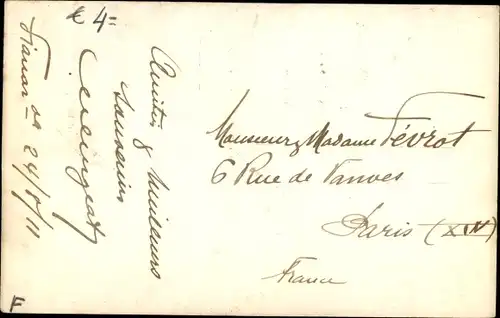 € 4=
Amitiés & meilleurs
souvenirs
24/8/11
Monsieur & Madame Févrot
6 Rue de Vanves
Paris (XIV)
France
F